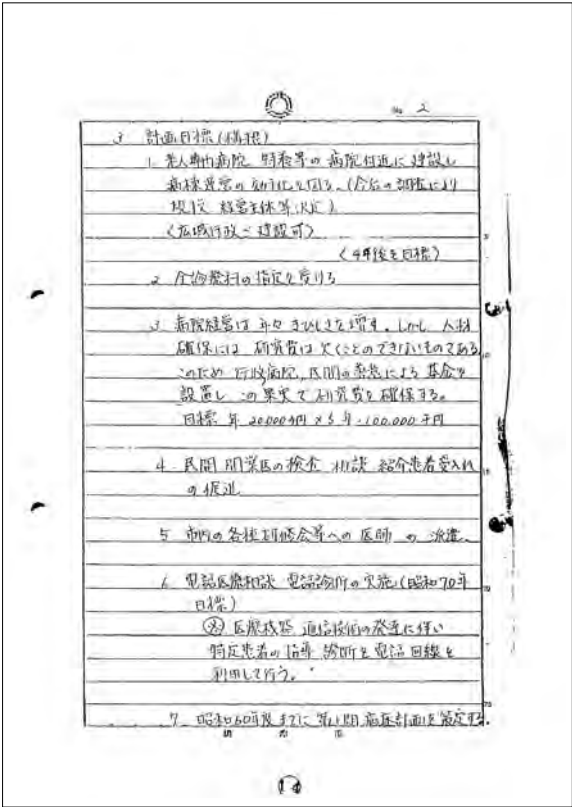 No 2
3 計画目標(構想)
1. 老人専門病院 特養等の病院付近に建設し
病棟運営の効率化を図る。(今后の調査により
規模 経営主体等決定)
(広域行政で建設可)
(4年後を目標)
2 の指定を受ける
3. 病院経営は年々きびしさを増す。しかし 人材
確保には 研究費は欠くことのできないものである
このため 行政 病院、民間の による 基金を
設置し この果実で研究費を確保する。
目標 年 20,000千円 × 5年 = 100,000千円
4. 民間 開業医の検査 相談 紹介患者受入れ
の促進
5 市内の各種研修会等への医師の派遣。
6. 電話医療相談 電話診断の実施(昭和70年
目標)
医療機器 通信技術の発達に伴い
特定患者の指導 診断を電話回線を
利用して行う。
7. 昭和60年度までに 第1期 計画を策定する。
14